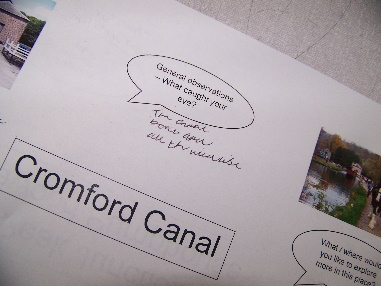 General observations
- What caught your
eye?
The Canal
all the wildlife
Cromford Canal
What / where would
you like to explore
more in this place?